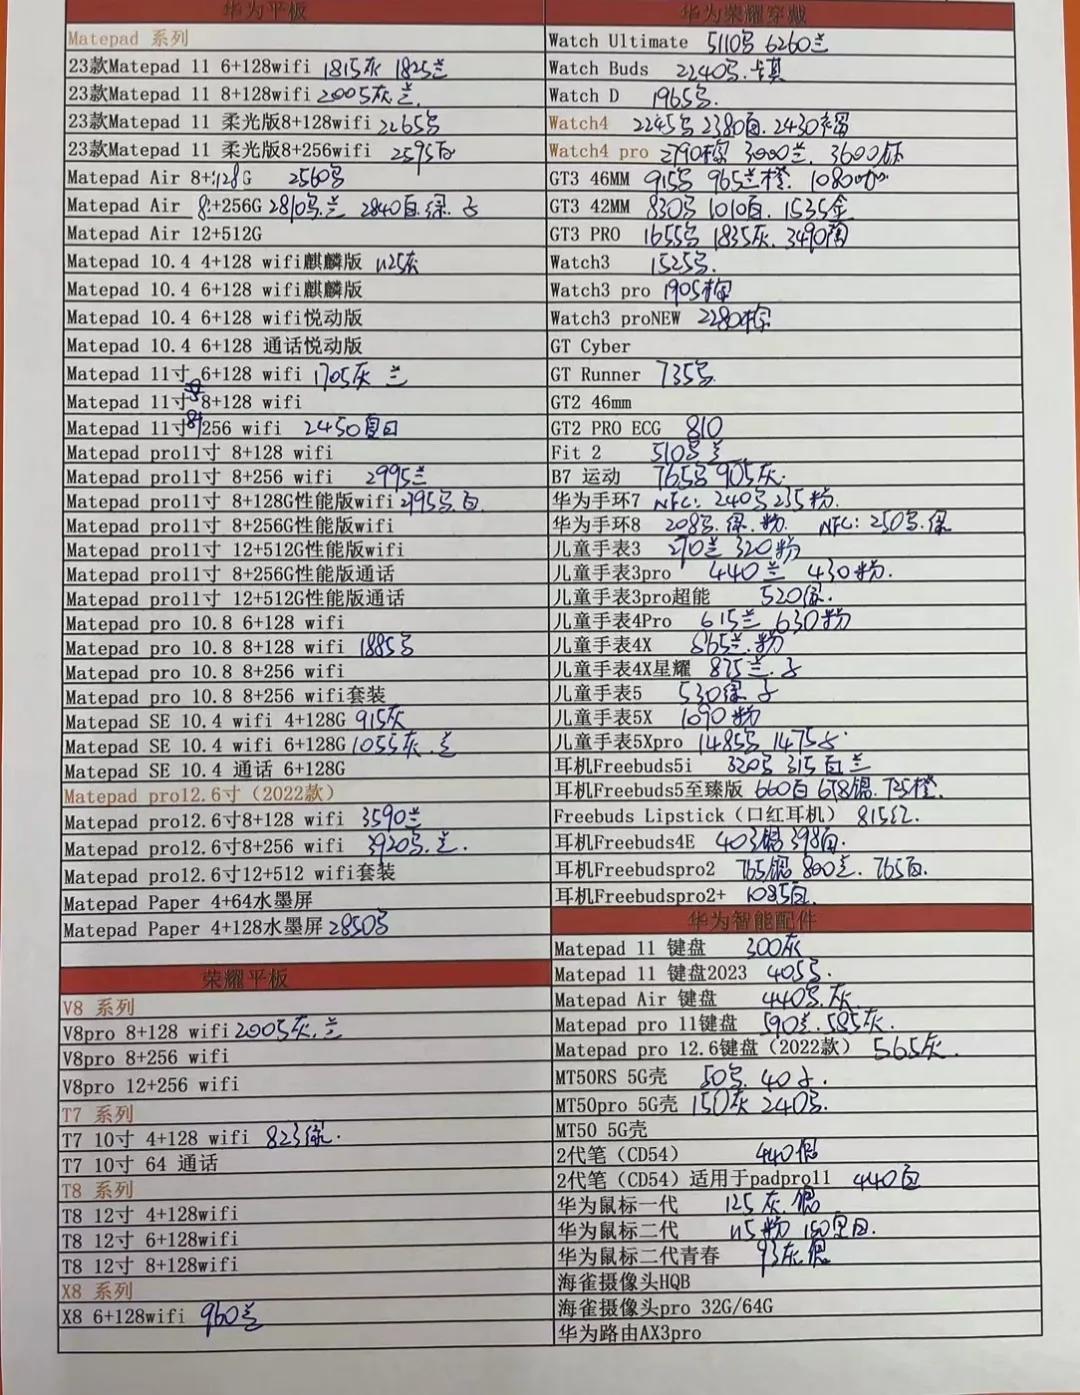 华为平板
Matepad 系列
23款Matepad 11 6+128wifi 1815灰 1825兰
23款Matepad 11 8+128wifi 2005灰.兰.
23款Matepad 11 柔光版8+128wifi 2265号
23款Matepad 11 柔光版8+256wifi 2595白
Matepad Air 8+128G 2560号
Matepad Air 8+256G 2810号.兰 2840白.绿.子
Matepad Air 12+512G
Matepad 10.4 4+128 wifi麒麟版 1125灰
Matepad 10.4 6+128 wifi麒麟版
Matepad 10.4 6+128 wifi悦动版
Matepad 10.4 6+128 通话悦动版
Matepad 11寸 6+128 wifi 1705灰 兰
Matepad 11寸 8+128 wifi
Matepad 11寸 8+256 wifi 2450
Matepad pro11寸 8+128 wifi
Matepad pro11寸 8+256 wifi 2995兰
Matepad pro11寸 8+128G性能版wifi 2795号.白.
Matepad pro11寸 8+256G性能版wifi
Matepad pro11寸 12+512G性能版wifi
Matepad pro11寸 8+256G性能版通话
Matepad pro11寸 12+512G性能版通话
Matepad pro 10.8 6+128 wifi
Matepad pro 10.8 8+128 wifi 1885号
Matepad pro 10.8 8+256 wifi
Matepad pro 10.8 8+256 wifi套装
Matepad SE 10.4 wifi 4+128G 915灰
Matepad SE 10.4 wifi 6+128G 1055灰.兰
Matepad SE 10.4 通话 6+128G
Matepad pro12.6寸（2022款）
Matepad pro12.6寸8+128 wifi 3590兰
Matepad pro12.6寸8+256 wifi 3920号.兰.
Matepad pro12.6寸12+512 wifi套装
Matepad Paper 4+64水墨屏
Matepad Paper 4+128水墨屏 2850号
荣耀平板
V8 系列
V8pro 8+128 wifi 2005灰.兰
V8pro 8+256 wifi
V8pro 12+256 wifi
T7 系列
T7 10寸 4+128 wifi 823绿.
T7 10寸 64 通话
T8 系列
T8 12寸 4+128wifi
T8 12寸 6+128wifi
T8 12寸 8+128wifi
X8 系列
X8 6+128wifi 960兰
华为荣耀穿戴
Watch Ultimate 5110号 6260兰
Watch Buds 2240号.卡其
Watch D 1965号.
Watch4 2245号 2380白. 2430
Watch4 pro 2790棕 3000兰. 3600钛
GT3 46MM 915号 965兰橙. 1080
GT3 42MM 830号 1010白. 1535金
GT3 PRO 1655号 1835灰. 3490陶
Watch3 1525号.
Watch3 pro 1905棕
Watch3 proNEW 2280棕
GT Cyber
GT Runner 735号
GT2 46mm
GT2 PRO ECG 810
Fit 2 510号 兰
B7 运动 765号 905灰.
华为手环7 NFC: 240号 235粉.
华为手环8 208号.绿.粉. NFC: 250号.绿
儿童手表3 270兰 320粉
儿童手表3pro 440兰 430粉.
儿童手表3pro超能 520绿.
儿童手表4Pro 615兰 630粉
儿童手表4X 565兰.粉
儿童手表4X星耀 875兰.子
儿童手表5 530绿 子
儿童手表5X 1090粉
儿童手表5Xpro 1485号 1475子.
耳机Freebuds5i 320号 315白兰
耳机Freebuds5至臻版 660白 678银. 735橙.
Freebuds Lipstick（口红耳机） 815红.
耳机Freebuds4E 403银 398白.
耳机Freebudspro2 765银 800兰. 765白.
耳机Freebudspro2+ 1085白.
华为智能配件
Matepad 11 键盘 300灰
Matepad 11 键盘2023 405号.
Matepad Air 键盘 440号.灰.
Matepad pro 11键盘 590兰.585灰.
Matepad pro 12.6键盘（2022款） 565灰.
MT50RS 5G壳 50号. 40子.
MT50pro 5G壳 150灰 240号.
MT50 5G壳
2代笔（CD54） 440银
2代笔（CD54）适用于padpro11 440白
华为鼠标一代 125灰.银
华为鼠标二代 115粉 150
华为鼠标二代青春 93灰.银
海雀摄像头HQB
海雀摄像头pro 32G/64G
华为路由AX3pro